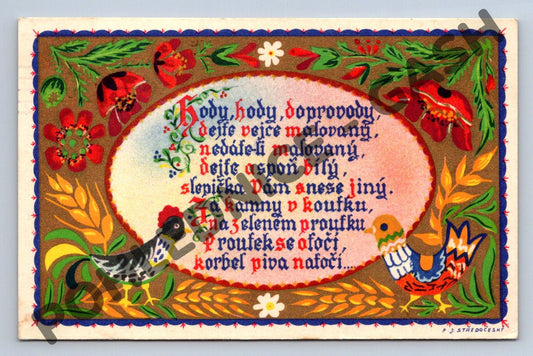 Hody, hody, doprovody,
dejte vejce malovaný,
nedáte-li malovaný,
dejte aspoň bílý,
slepička Vám snese jiný.
Za kamny v koutku,
na zeleném proutku
Proutek se otočí,
korbel piva natočí....
F. J. STŘEDOČESKÝ